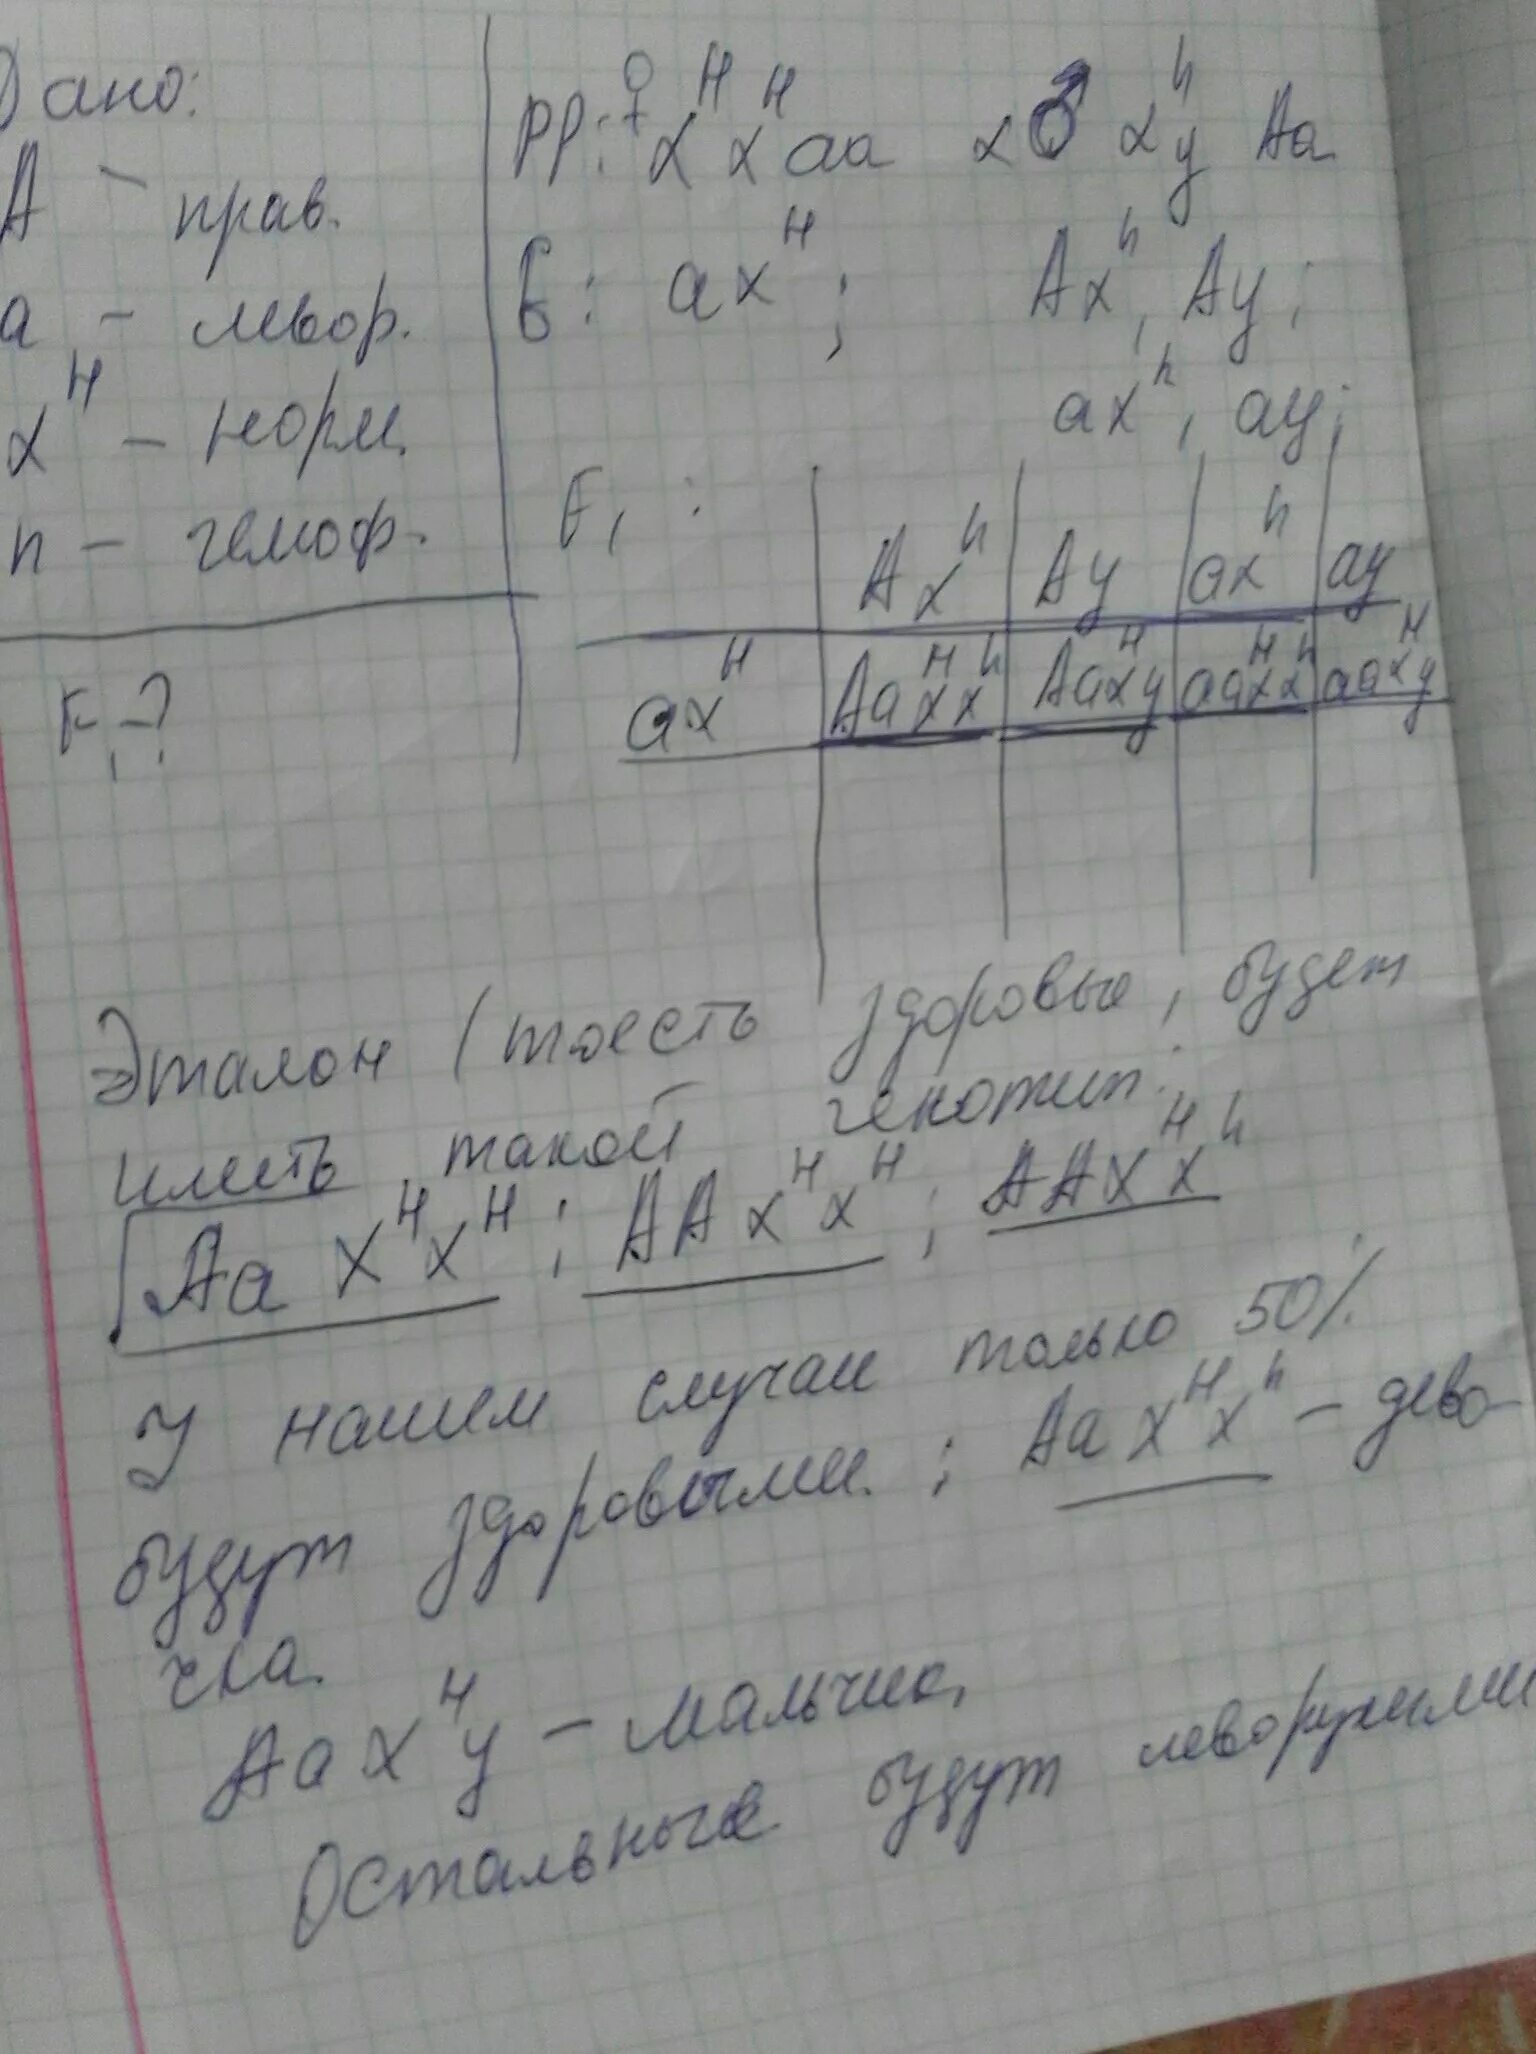 Дано:
А – прав.
а – левор.
x^H – норм.
h – гемоф.
F₁ – ?
PP: ♀ x^H x^H aa x ♂ x^h y Aa
G: ax^H; Ax^h, Ay;
ax^h, ay;
F₁:
Ax^h Ay ax^h ay
ax^H Aax^Hx^h Aax^Hy aax^Hx^h aax^Hy
Эталон (тоесть здоровые, будет
иметь такой генотип:
Aa x^H x^H; AA x^H x^H; AA x^H x^h
У нашем случаи только 50%
будут здоровыми.; Aa x^H x^h – дево-
чка.
Aa x^H y – мальчик,
Остальные будут леворукими